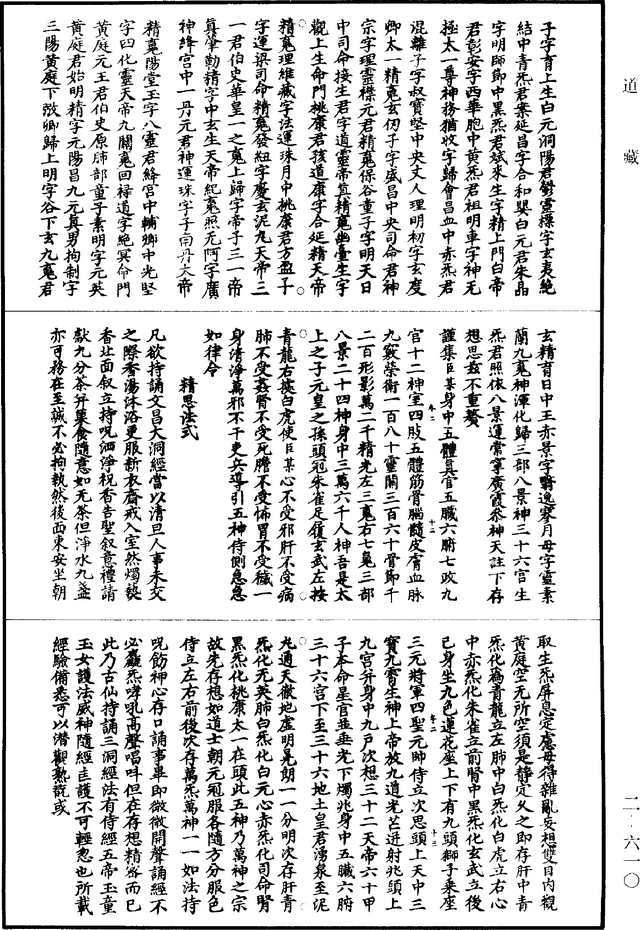 道藏
子字育上生白元洞陽君鬱靈標字玄夷絶
結中青炁君案延昌字合和嬰白元君朱晶
字明師節中黑炁君斌來生字精上門白帝
君彭安字西華胞中黄炁君祖明車字神无
極太一尊神務猶收字歸會昌血中赤炁君
混離子字叔寶堅中央丈人理明初字玄度
卿太一精䰟玄仞子字盛昌中央司命君神
宗字理靈襟元君精䰟保谷童子字明天日
中司命接生君字道靈帝皇精䰟幽臺生字
觀上生命門桃康君孩道康字合延精天帝
精䰟理維藏字法運珠月中桃康君方盈子
字運梁司命精䰟發紐字慶玄泥丸天帝三
一君伯史華皇一之䰟上歸字帝子三一帝
真肇勒精字中玄生天帝紀䰟照无阿字廣
神絳宫中一丹元君神運珠字子南丹太帝
精䰟陽堂玉字八靈君絳宫中輔卿中光堅
字四化靈天帝九關䰟回禄道字絶冥命門
黄庭元王君伯史原肺部童子素明字元英
黄庭君始明精字元陽昌九元真男拘制字
三陽黄庭下攷卿歸上明字谷下玄九䰟君
玄精育日中王赤景字翳逸寥月母字靈素
蘭九䰟神渾化歸三部八景神三十六宫生
炁君照依八景運常寧廣霞叅神天註下存
想思兹不重贅
謹集臣某身中五體真官五臟六腑七政九
宫十二神室四肢五體筋骨腦髓皮膚血脉
九竅榮衛一百八十靈關三百六十骨節千
二百形影萬二千精光左三䰟右七䰟三部
八景二十四神身中三萬六千人神吾是太
上之子元皇之孫頭冠朱雀足履玄武左按
青龍右挾白虎使臣某心不受邪肝不受病
肺不受姦腎不受死膽不受怖胃不受穢一
身清淨萬邪不干吏兵導引五神侍側急急
如律令
精思法式
凡欲持誦文昌大洞經當以清旦人事未交
之際香湯沐浴更服新衣齋戒入室然燭爇
香北面叙立持呪洒淨祝香告聖叙意禮請
獻九分茶并菓食隨意如无茶但淨水九盞
亦可務在至誠不必拘執然後西東安坐朝
取生炁屏息定慮毋得雜亂妄想雙目内觀
黄庭空无所空須是靜定久之即存肝中青
炁化為青龍立左肺中白炁化白虎立右心
中赤炁化朱雀立前腎中黑炁化玄武立後
己身坐九色蓮花座上下有九頭獅子乘座
三元將軍四聖元帥侍立次思頭上天中三
寶九霄生神上帝放九道光芒迸射兆頭上
九宫并身中九户次想三十二天帝六十甲
子本命星官並垂光下燭兆身中五臟六腑
三十六宫下至三十六地土皇君湧泉至泥
丸通天徹地虚明晃朗一一分明次存肝青
炁化无英肺白炁化白元心赤炁化司命腎
黑炁化桃康太一在頭此五神乃萬神之宗
故先存想如道士朝元冠服各隨方分服色
侍立左右前後次存萬炁萬神一一如法持
呪飭神心存口誦事畢即微微開聲誦經不
必麤炁哮吼高聲唱叫但在存想精宻而已
此乃古仙持誦三洞經法有侍經五帝玉童
玉女護法威神隨經𠯁護不可輕忽也所載
經驗備悉可以潛觀熟翫或
卷二
十二
卷二
十三
二·六一〇